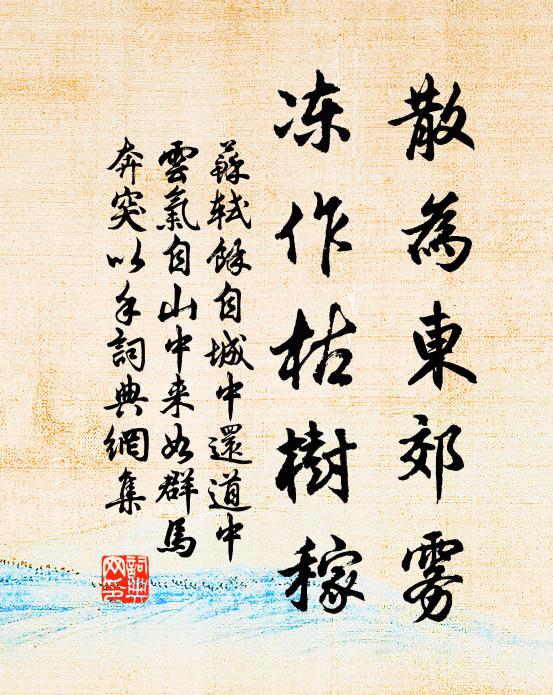 散為東郊雾
冻作枯樹稼
蘇軾餘自城中還道中
雲氣自山中来如群馬
奔突以手詞典網集
詞典网